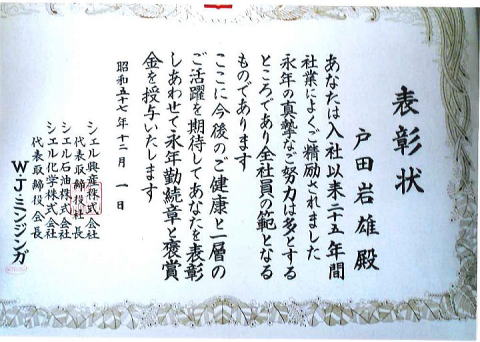 表彰状
戸田岩雄殿
あなたは入社以来二十五年間
社業によくご精励されました
永年の真摯なご努力は多とする
ところであり全社員の範となる
ものであります
ここに今後のご健康と一層の
ご活躍を期待してあなたを表彰
しあわせて永年勤続章と褒賞
金を授与いたします
昭和五十七年十二月一日
シェル興産株式会社
代表取締役社長
シェル石油株式会社
シェル化学株式会社
代表取締役会長
W・J・ミンジンガ